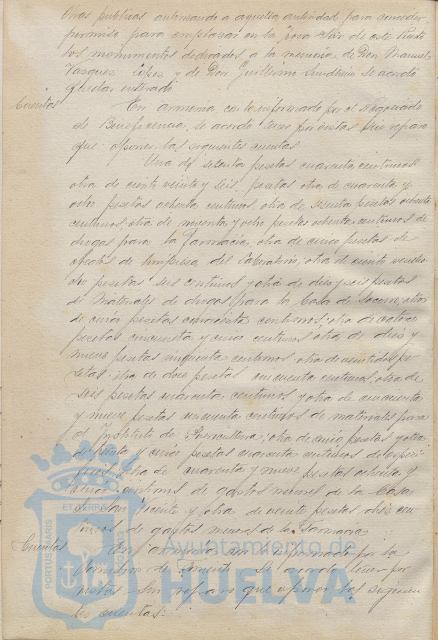 Obras públicas autorizando a aquella autoridad para conceder
permiso para emplazar en la Zona Sur de este Puerto
los monumentos dedicados a la memoria de Don Manuel
Vazquez Lopez y de Don Guillermo Sundheim se acordó
quedar enterado
Cuentas En armonia con lo informado por el Negociado
de Beneficencia, se acordó tener por vistas sin reparo
que oponer las siguientes cuentas
Una de setenta pesetas cuarenta centimos
otra de ciento veinte y seis pesetas otra de cuarenta y
ocho pesetas ochenta centimos otra de pesetas
centimos, otra de noventa y ocho pesetas ochenta centimos de
drogas para la farmacia, otra de cinco pesetas de
efectos de limpieza del Laboratorio; otra de ciento
ocho pesetas seis centimos y otra de diez y seis pesetas
de material de drogas para la Casa de Socorro, otra
de cinco pesetas cincuenta centimos, otra de cuatro
pesetas cincuenta y cinco centimos, otra de diez y
nueve pesetas cincuenta centimos, otra de veintidos pe-
setas, otra de doce pesetas cincuenta centimos, otra de
seis pesetas cuarenta centimos y otra de cincuenta
y nueve pesetas cincuenta centimos de materiales para
el Instituto de Puericultura; otra de cinco pesetas y otra
de y cinco pesetas cuarenta centimos de
otra de cuarenta y nueve pesetas ochenta y
cinco centimos de gastos menores de la Casa
de y otra de veinte pesetas diez cen-
timos de gastos menores de la Farmacia
Cuentas En armonia con lo informado por la
Comision de Fomento se acordó tener por
vistas sin reparo que oponer las siguien-
tes cuentas:
PORTUS MARIS
ET TERRE
Ayuntamiento de
HUELVA